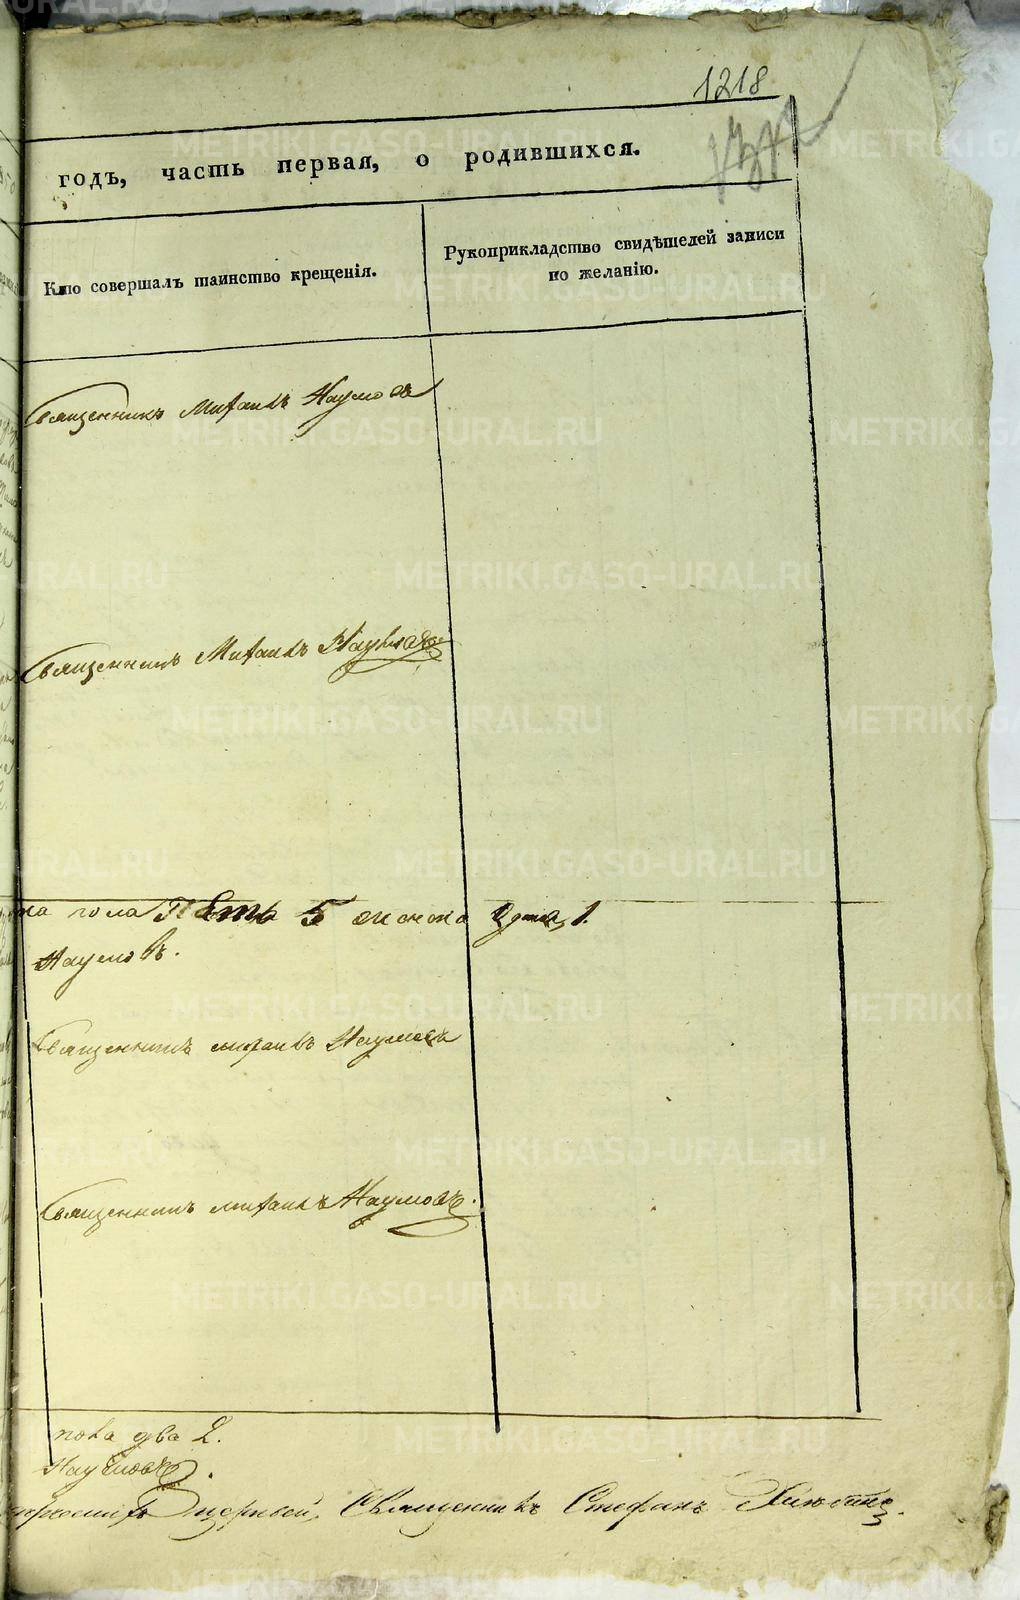 1218
годъ, часть первая, о родившихся.
Кто совершалъ таинство крещенія.
Рукоприкладство свидѣтелей записи
по желанію.
Священникъ Михаилъ Наумовъ
Священникъ Михаилъ Наумовъ
пола Пять 5 женска 1.
Наумовъ.
Священникъ михаилъ Наумовъ
Священникъ михаилъ Наумовъ.
пола два 2.
Наумовъ.
церквей, Священникъ Стефанъ
METRIKI.GASO-URAL.RU